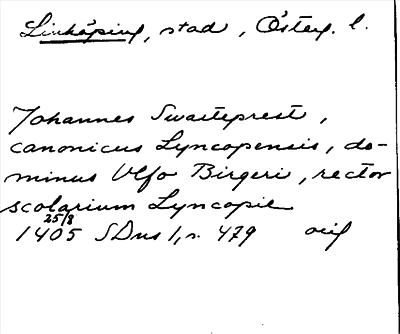 Linköping, stad, Östeg. l.
Johannes Swarteprest,
canonicus Lyncopensis, do-
minus Ulfo Birgeri, rector
scolarium Lyncopie
25/8
1405 SDns 1, s. 479